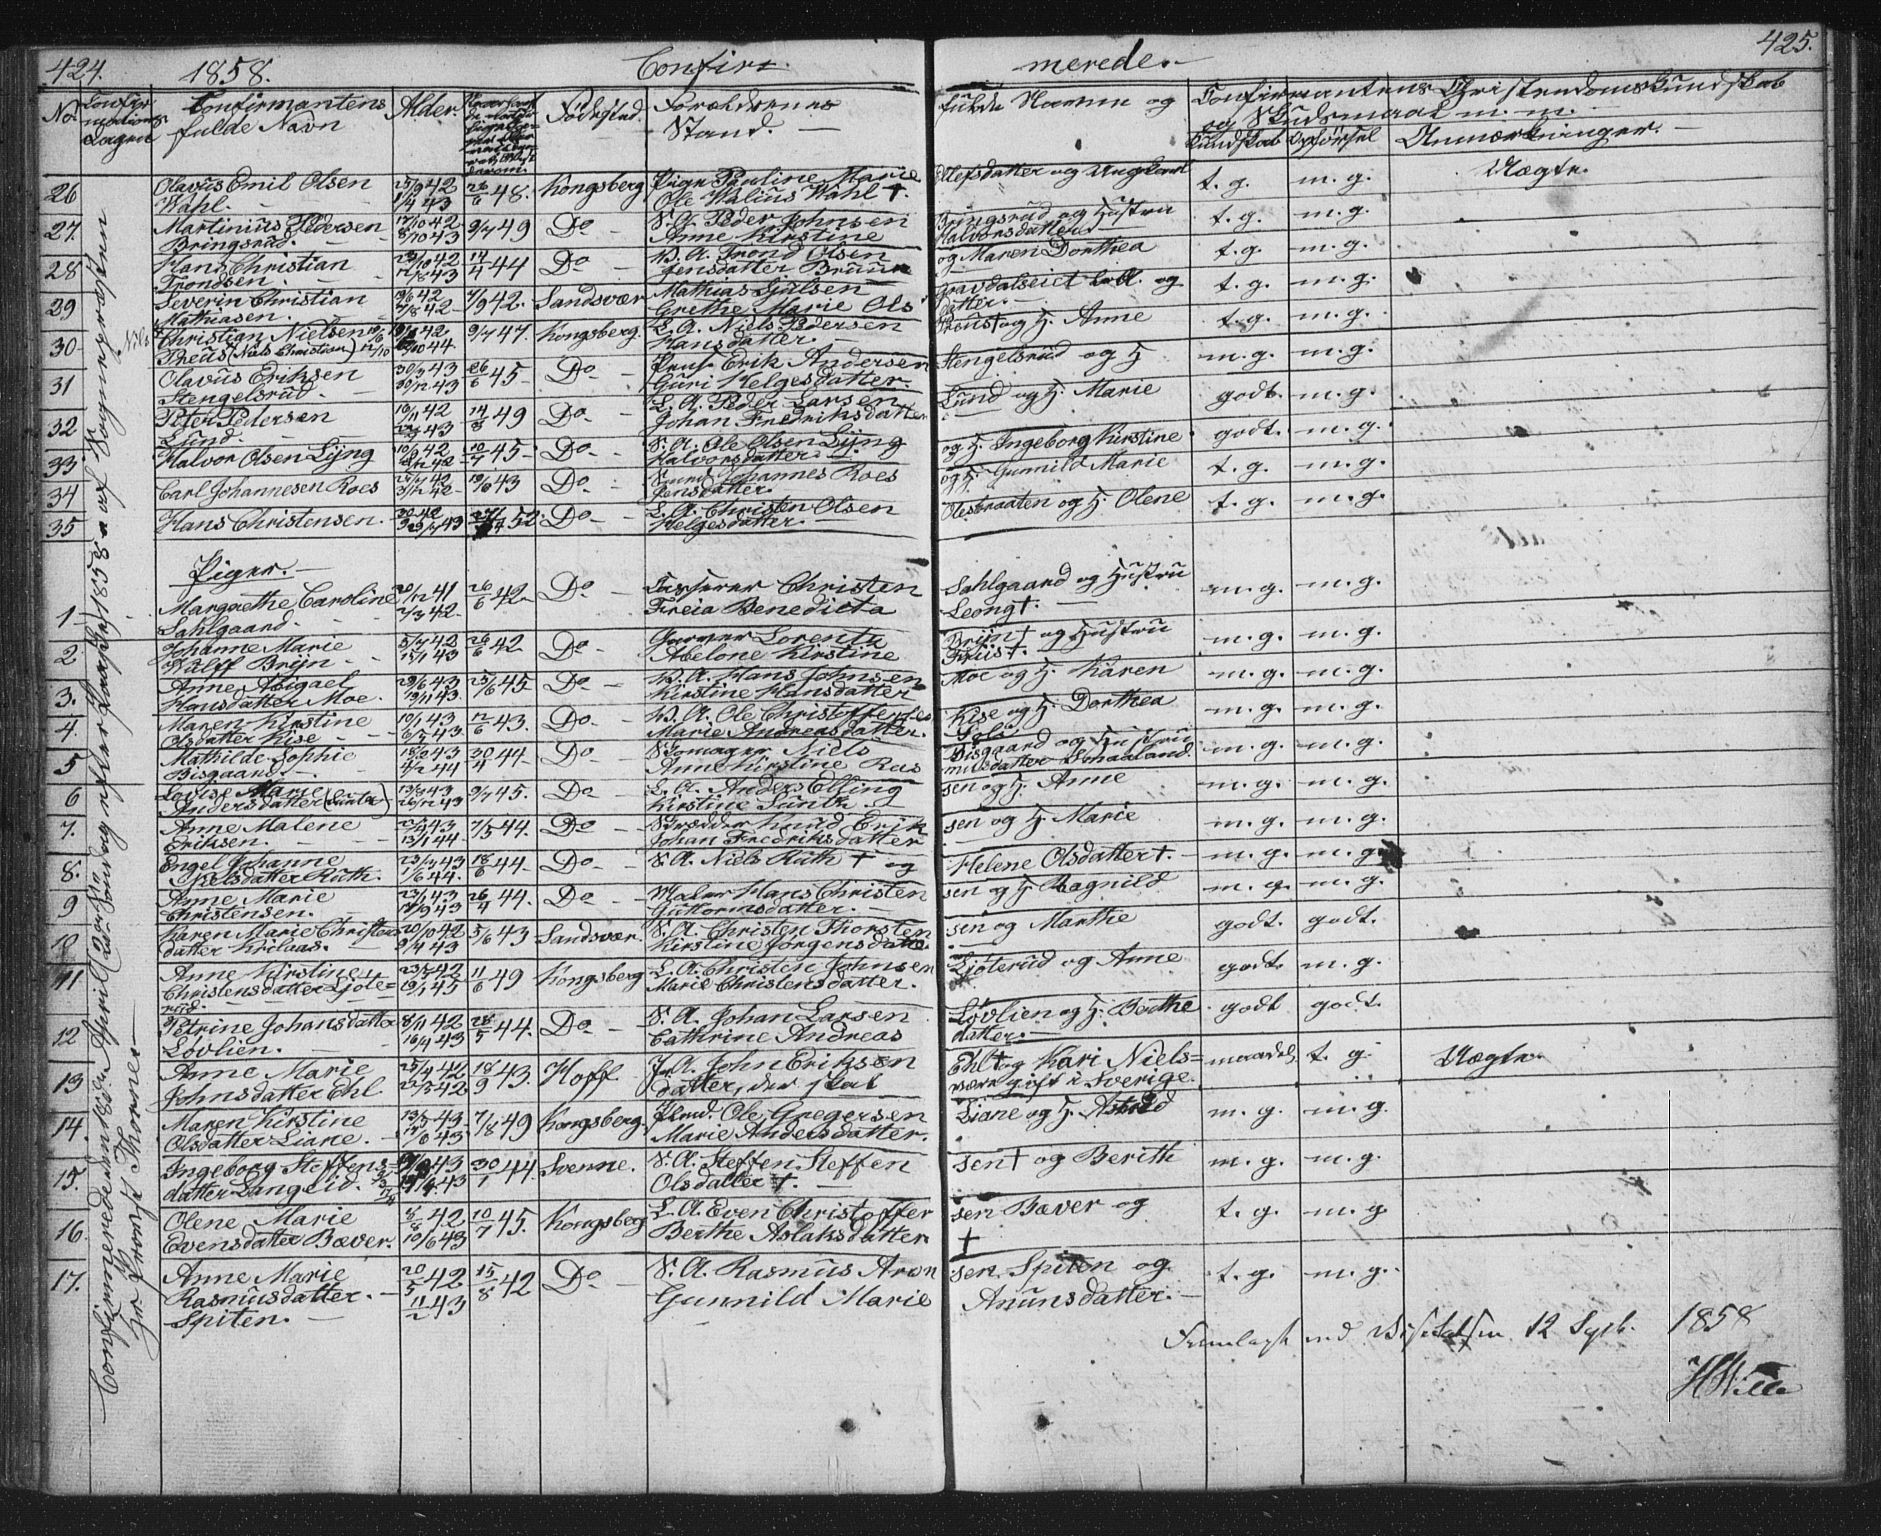 424. 1858. Confir=
merede.- 425.
No. Confirmationsdagen Confirmantens fulde Navn Alder. Fødested. Forældrenes Stand. -
fulde Navne og Confirmantens Christendomskundskab og Skudsmaal m. m.
Kundskab Opførsel Anmærkninger. -
26 Olavus Emil Olsen 25/9 42 26/6 48. Kongsberg Pige Pauline Marie Olefsdatter og Ungkarl t. g. m. g. Uægte.
Wahl. - 1/4 43 Ole Walius Wahl †.
27. Martinius Pedersen 17/10 42 9/7 49 Do - S. A. Peder Johnsen Bringsrud og Hustru t. g. m. g.
Bringsrud. - 8/10 43 Anne Kirstine Halvorsdatter
28 Hans Christian 42 14/4 44 Do - B. A. Trond Olsen og Maren Dorthea t. g. m. g.
Trondsen. - 43 Jensdatter Bruun
29 Severin Christian 42 4/9 42. Sandsvær Mathias Gjulsen og t. g. m. g.
Mathiasen. 42 - Grethe Marie Ols datter. -
30 Christian Nielsen 42 9/7 47. Kongsberg. L. A. Niels Pedersen Preus † og H. Anne t. g. m. g.
Preus (Niels Christian) 44. Hansdatter. -
31 Olavus Eriksen 30/3 43 26/6 45 - Do - Erik Andersen Stengelsrud og H m. g. m. g.
Stengelsrud. - 43 Guri Helgesdatter -
32 Peter Pedersen 10/11 42 14/8 49 Do - L. A. Peder Larsen Lund og H. Marie godt. m. g.
Lund. - 43 Johan Fredriksdatter
33 Halvor Olsen Ljyng 42 10/7 45 - Do - S. A. Ole Olsen Ljyng og H. Ingeborg Kirstine godt. m. g.
42 Halvorsdatter. -
34 Carl Johannesen Roes 42 43 Do - Johannes Roes og H. Gunnild Marie t. g. m. g.
42 - Jensdatter.
35 Hans Christensen. 42 52 Do - L. A. Christen Olsen Olesbraaten og H. Olene t. g. m. g.
43 Helgesdatter. -
Piger. -
1 - Margrethe Caroline 20/12 41 26/6 42 - Do - Casserer Christen Sahlgaard og Hustru m. g. m. g.
Sahlgaard. - 2/3 42 - Freia Benedicta Leong †. -
2 Johanne Marie 5/7 42 26/6 42 Do - Lorentz Brijn † og Hustru m. g. m. g.
Wulff Brijn - 15/1 43 Abelone Kirstine Friis †.
3. Anne Abigael 29/6 43 25/6 45 Do - B. A. Hans Johnsen Moe og H. Karen m. g. m. g.
Hansdatter Moe. 19/11 43. Kirstine Hansdatter
4. Maren Kirstine 10/1 43 11/6 43. Do - B. A. Ole Christoffersen Kise og H. Dorthea m. g. m. g.
Olsdatter Kise - 43 Marie Andreasdatter.
5 Mathilde Sophie 43 30/4 44 - Do - Niels Bisgaard og Hustru m. g. m. g.
Bisgaard. - 4/2 44 Anne Kirstine Ras musdatter
6 Lovise Marie 13/9 43 9/7 45. Do - L. A. Anders Elling sen og H. Anne m. g. m. g.
Andersdatter 26/12 43 Kirstine -
7. Anne Malene 43 7/5 44. Do - Skrædder Knud Erik sen og H. Marie m. g. m. g.
Eriksen. - 13/1 44 - Johan Fredriksdatter
8. Engel Johanne 23/12 43 18/6 44. Do - S. A. Niels Ruth † og Helene Olsdatter †. - m. g. m. g.
Nielsdatter Ruth. 1/6 44.
9 Anne Marie 23/1 43 26/4 44. Do - Maler Hans Christen sen og H. Ragnild m. g. m. g.
Christensen. 17/9 43 Guttormsdatter. -
10 Karen Marie Christens 20/10 42 5/6 43 Sandsvær. S. A. Christen Thorsten sen og Marthe godt. godt.
datter 9/4 43 Kirstine Jørgensdatter
11 Anne Kirstine 23/5 42 11/6 49 Kongsberg L. A. Christen Johnsen Ljøterud og Anne godt m. g.
Christensdatter Ljøte= 19/1 45 Marie Christensdatter.
rud.
12 Petrine Johansdatter 8/11 42 28/5 44. Do - S. A. Johan Larsen Løvlien og H. Berthe godt godt.
Løvlien. - 16/4 43 Cathrine Andreas datter. -
13 Anne Marie 25/4 42 18/9 43. Hoff. J. A. John Eriksen Ehl † og Kari Niels= maadel. t. g. Uægte.
Johnsdatter Ehl 22/5 42. datter, der skal være gift i Sverige.
14. Maren Kirstine 13/5 43 - 7/8 49 Kongsberg. Ole Gregersen Liane og H. Astrid m. g. m. g.
Olsdatter Liane. - 43 Marie Andersdatter.
15. Ingeborg Steffens= 43 30/1 44. Svenne. S. A. Steffen Steffen sen † og Berith m. g. m. g.
datter Langlid. 43 Olsdatter †. -
16 Olene Marie 8/8 42 10/7 45. Kongsberg L. A. Even Christoffer sen Bæver og t. g. m. g
Evensdatter Bæver. 10/6 43 Berthe Aslaksdatter †
17. Anne Marie 20/5 42 15/8 42 Do - S. A. Rasmus Aron sen Spiten og t. g. m. g. -
Rasmusdatter. - 11/2 43 Gunnild Marie Anunsdatter. -
Spiten. -
Confirmerede den 18de April (2den Søndag efter Paaske) 1858 af Sognepræsten
Hr. Provst Thorne -
Fremlagt ved Visitatsen 12 Septb. 1858
HWille